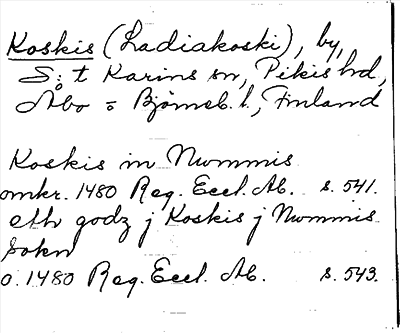 Koskis (Ladiakoski), by,
S:t Karins sn, Pikis hd,
Åbo = Björneb. l., Finland
Koskis in Nummis
omkr. 1480 Reg. Eccl. Ab. s. 541.
eth godz j Koskis j Nummis
sokn
o. 1480 Reg. Eccl. Ab. s. 543.